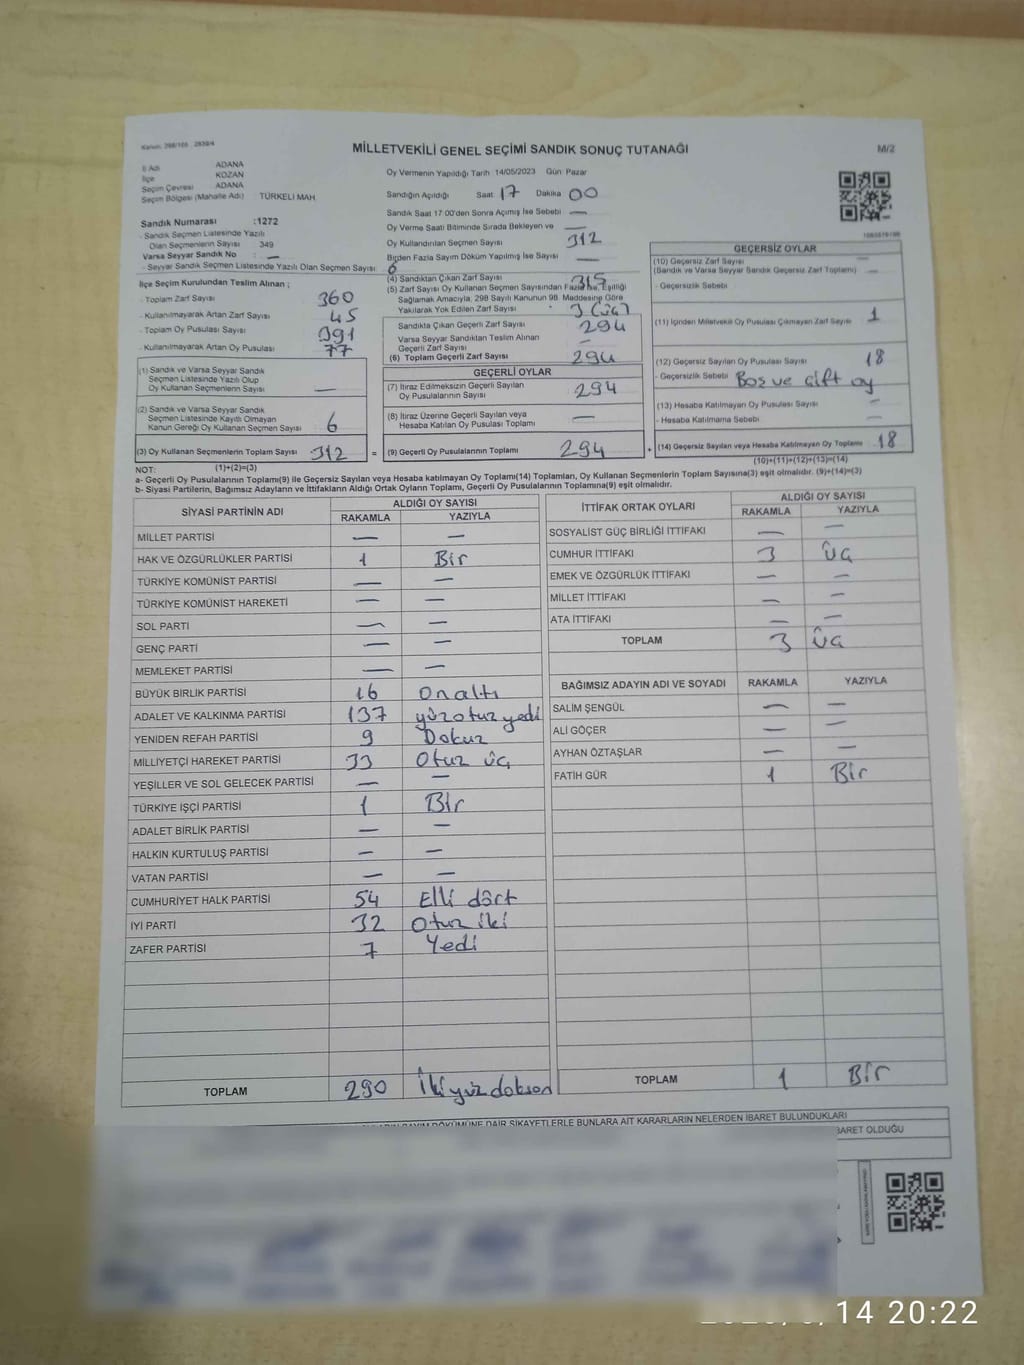 MİLLETVEKİLİ GENEL SEÇİMİ SANDIK SONUÇ TUTANAĞI
M/2
İl Adı ADANA
İlçe KOZAN
Seçim Çevresi ADANA
Seçim Bölgesi (Mahalle Adı) TÜRKELİ MAH.
Sandık Numarası :1272
- Sandık Seçmen Listesinde Yazılı
Olan Seçmenlerin Sayısı 349
Varsa Seyyar Sandık No —
- Seyyar Sandık Seçmen Listesinde Yazılı Olan Seçmen Sayısı 6
İlçe Seçim Kurulundan Teslim Alınan ;
- Toplam Zarf Sayısı 360
- Kullanılmayarak Artan Zarf Sayısı 45
- Toplam Oy Pusulası Sayısı 391
- Kullanılmayarak Artan Oy Pusulası 77
(1) Sandık ve Varsa Seyyar Sandık
Seçmen Listesinde Yazılı Olup
Oy Kullanan Seçmenlerin Sayısı —
(2) Sandık ve Varsa Seyyar Sandık
Seçmen Listesinde Kayıtlı Olmayan
Kanun Gereği Oy Kullanan Seçmen Sayısı 6
(3) Oy Kullanan Seçmenlerin Toplam Sayısı 312 =
(1)+(2)=(3)
Oy Vermenin Yapıldığı Tarih 14/05/2023 Gün Pazar
Sandığın Açıldığı Saat 17 Dakika 00
Sandık Saat 17.00'den Sonra Açılmış İse Sebebi —
Oy Verme Saati Bitiminde Sırada Bekleyen ve —
Oy Kullandırılan Seçmen Sayısı 312
Birden Fazla Sayım Döküm Yapılmış İse Sayısı —
(4) Sandıktan Çıkan Zarf Sayısı 315
(5) Zarf Sayısı Oy Kullanan Seçmen Sayısından Fazla İse, Eşitliği
Sağlamak Amacıyla, 298 Sayılı Kanunun 98. Maddesine Göre
Yakılarak Yok Edilen Zarf Sayısı 3 (üç)
Sandıkta Çıkan Geçerli Zarf Sayısı 294
Varsa Seyyar Sandıktan Teslim Alınan
Geçerli Zarf Sayısı —
(6) Toplam Geçerli Zarf Sayısı 294
GEÇERLİ OYLAR
(7) İtiraz Edilmeksizin Geçerli Sayılan
Oy Pusulalarının Sayısı 294
(8) İtiraz Üzerine Geçerli Sayılan veya
Hesaba Katılan Oy Pusulası Toplamı —
(9) Geçerli Oy Pusulalarının Toplamı 294 +
GEÇERSİZ OYLAR
(10) Geçersiz Zarf Sayısı —
(Sandık ve Varsa Seyyar Sandık Geçersiz Zarf Toplamı)
- Geçersizlik Sebebi
(11) İçinden Milletvekili Oy Pusulası Çıkmayan Zarf Sayısı 1
(12) Geçersiz Sayılan Oy Pusulası Sayısı 18
- Geçersizlik Sebebi Boş ve çift oy
(13) Hesaba Katılmayan Oy Pusulası Sayısı —
- Hesaba Katılmama Sebebi —
(14) Geçersiz Sayılan veya Hesaba Katılmayan Oy Toplamı 18
(10)+(11)+(12)+(13)=(14)
NOT:
a- Geçerli Oy Pusulalarının Toplamı(9) ile Geçersiz Sayılan veya Hesaba katılmayan Oy Toplamı(14) Toplamları, Oy Kullanan Seçmenlerin Toplam Sayısına(3) eşit olmalıdır. (9)+(14)=(3)
b- Siyasi Partilerin, Bağımsız Adayların ve İttifakların Aldığı Ortak Oyların Toplamı, Geçerli Oy Pusulalarının Toplamına(9) eşit olmalıdır.
SİYASİ PARTİNİN ADI ALDIĞI OY SAYISI
RAKAMLA YAZIYLA
MİLLET PARTİSİ — —
HAK VE ÖZGÜRLÜKLER PARTİSİ 1 Bir
TÜRKİYE KOMÜNİST PARTİSİ — —
TÜRKİYE KOMÜNİST HAREKETİ — —
SOL PARTİ — —
GENÇ PARTİ — —
MEMLEKET PARTİSİ — —
BÜYÜK BİRLİK PARTİSİ 16 onaltı
ADALET VE KALKINMA PARTİSİ 137 yüzotuzyedi
YENİDEN REFAH PARTİSİ 9 Dokuz
MİLLİYETÇİ HAREKET PARTİSİ 33 Otuz üç
YEŞİLLER VE SOL GELECEK PARTİSİ — —
TÜRKİYE İŞÇİ PARTİSİ 1 Bir
ADALET BİRLİK PARTİSİ — —
HALKIN KURTULUŞ PARTİSİ — —
VATAN PARTİSİ — —
CUMHURİYET HALK PARTİSİ 54 Elli dört
İYİ PARTİ 32 Otuz iki
ZAFER PARTİSİ 7 Yedi
TOPLAM 290 İkiyüzdoksan
İTTİFAK ORTAK OYLARI ALDIĞI OY SAYISI
RAKAMLA YAZIYLA
SOSYALİST GÜÇ BİRLİĞİ İTTİFAKI — —
CUMHUR İTTİFAKI 3 üç
EMEK VE ÖZGÜRLÜK İTTİFAKI — —
MİLLET İTTİFAKI — —
ATA İTTİFAKI — —
TOPLAM 3 üç
BAĞIMSIZ ADAYIN ADI VE SOYADI RAKAMLA YAZIYLA
SALİM ŞENGÜL — —
ALİ GÖÇER — —
AYHAN ÖZTAŞLAR — —
FATİH GÜR 1 Bir
TOPLAM 1 Bir
DÖKÜMÜNE DAİR ŞİKAYETLERLE BUNLARA AİT KARARLARIN NELERDEN İBARET BULUNDUKLARI
BARET OLDUĞU
14 20:22